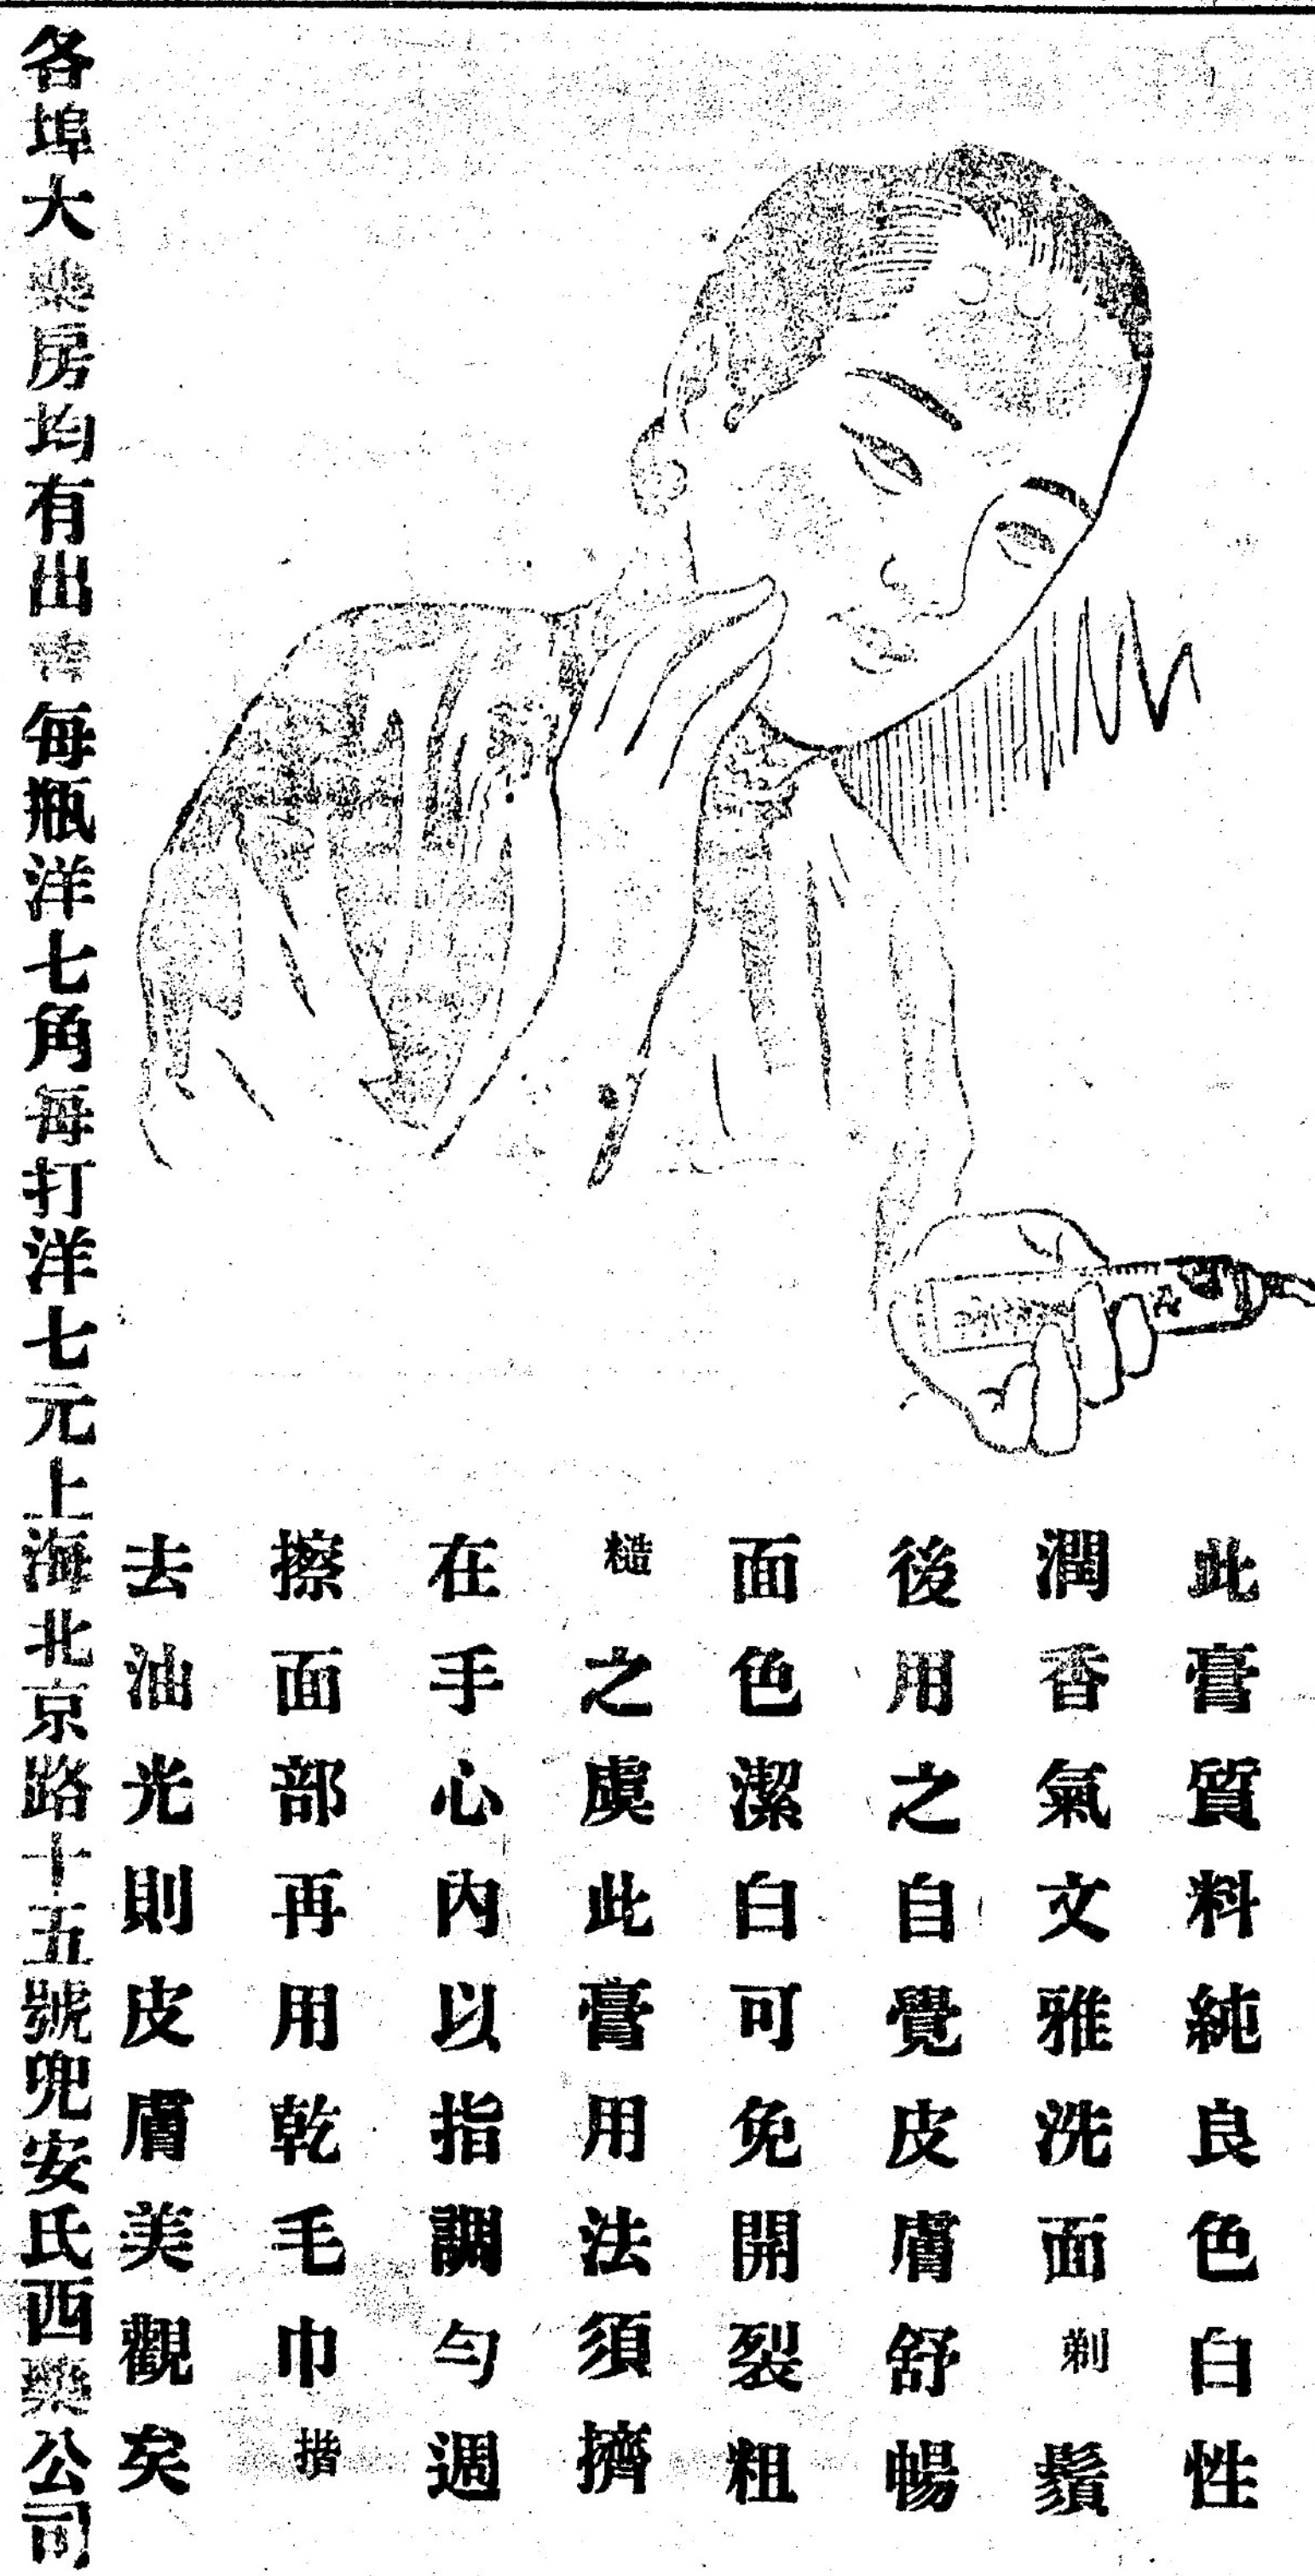 此膏質料純良色白性
潤香氣文雅洗面剃鬚
後用之自覺皮膚舒暢
面色潔白可免開裂粗
糙之虞此膏用法須擠
在手心內以指調勻週
擦面部再用乾毛巾揩
去油光則皮膚美觀矣
各埠大藥房均有出售每瓶洋七角每打洋七元上海北京路十五號兜安氏西藥公司